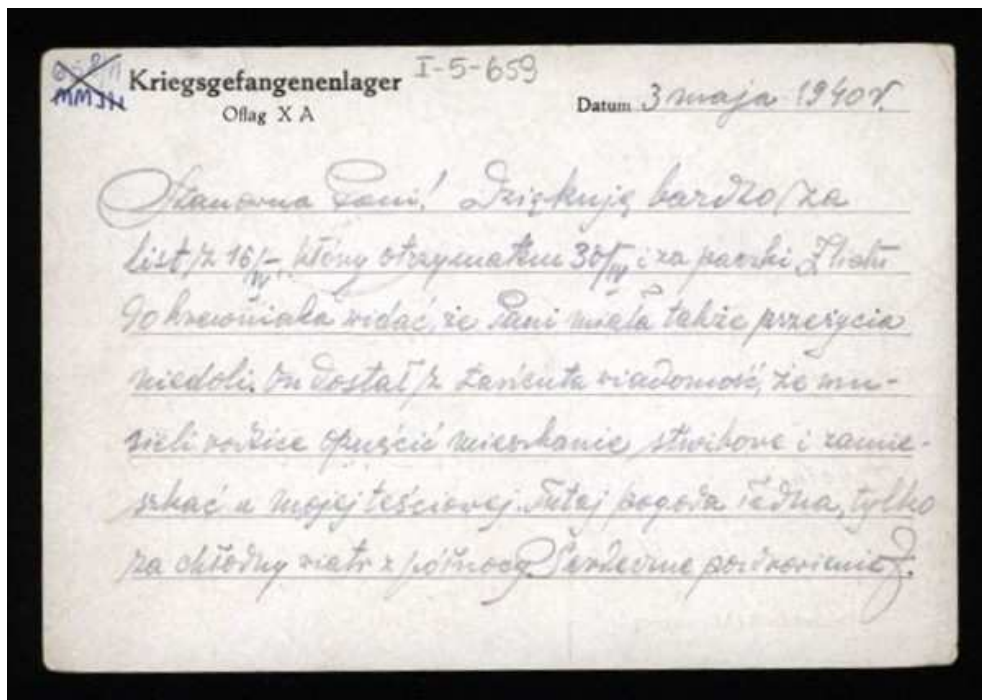 I-5-659
MMJH
Kriegsgefangenenlager
Oflag X A
Datum 3 maja 1940 r.
Szanowna Pani! Dziękuję bardzo za
list z 16/IV, który otrzymałem 30/IV i za paczki. Z listu
do krewniaka widać, że Pani miała także przeżycia
niedoli. On dostał z Łańcuta wiadomość, że mu-
sieli rodzice opuścić mieszkanie i zamie-
szkać u mojej teściowej. Tutaj pogoda ładna, tylko
za chłodny wiatr z północy. Serdeczne pozdrowienia